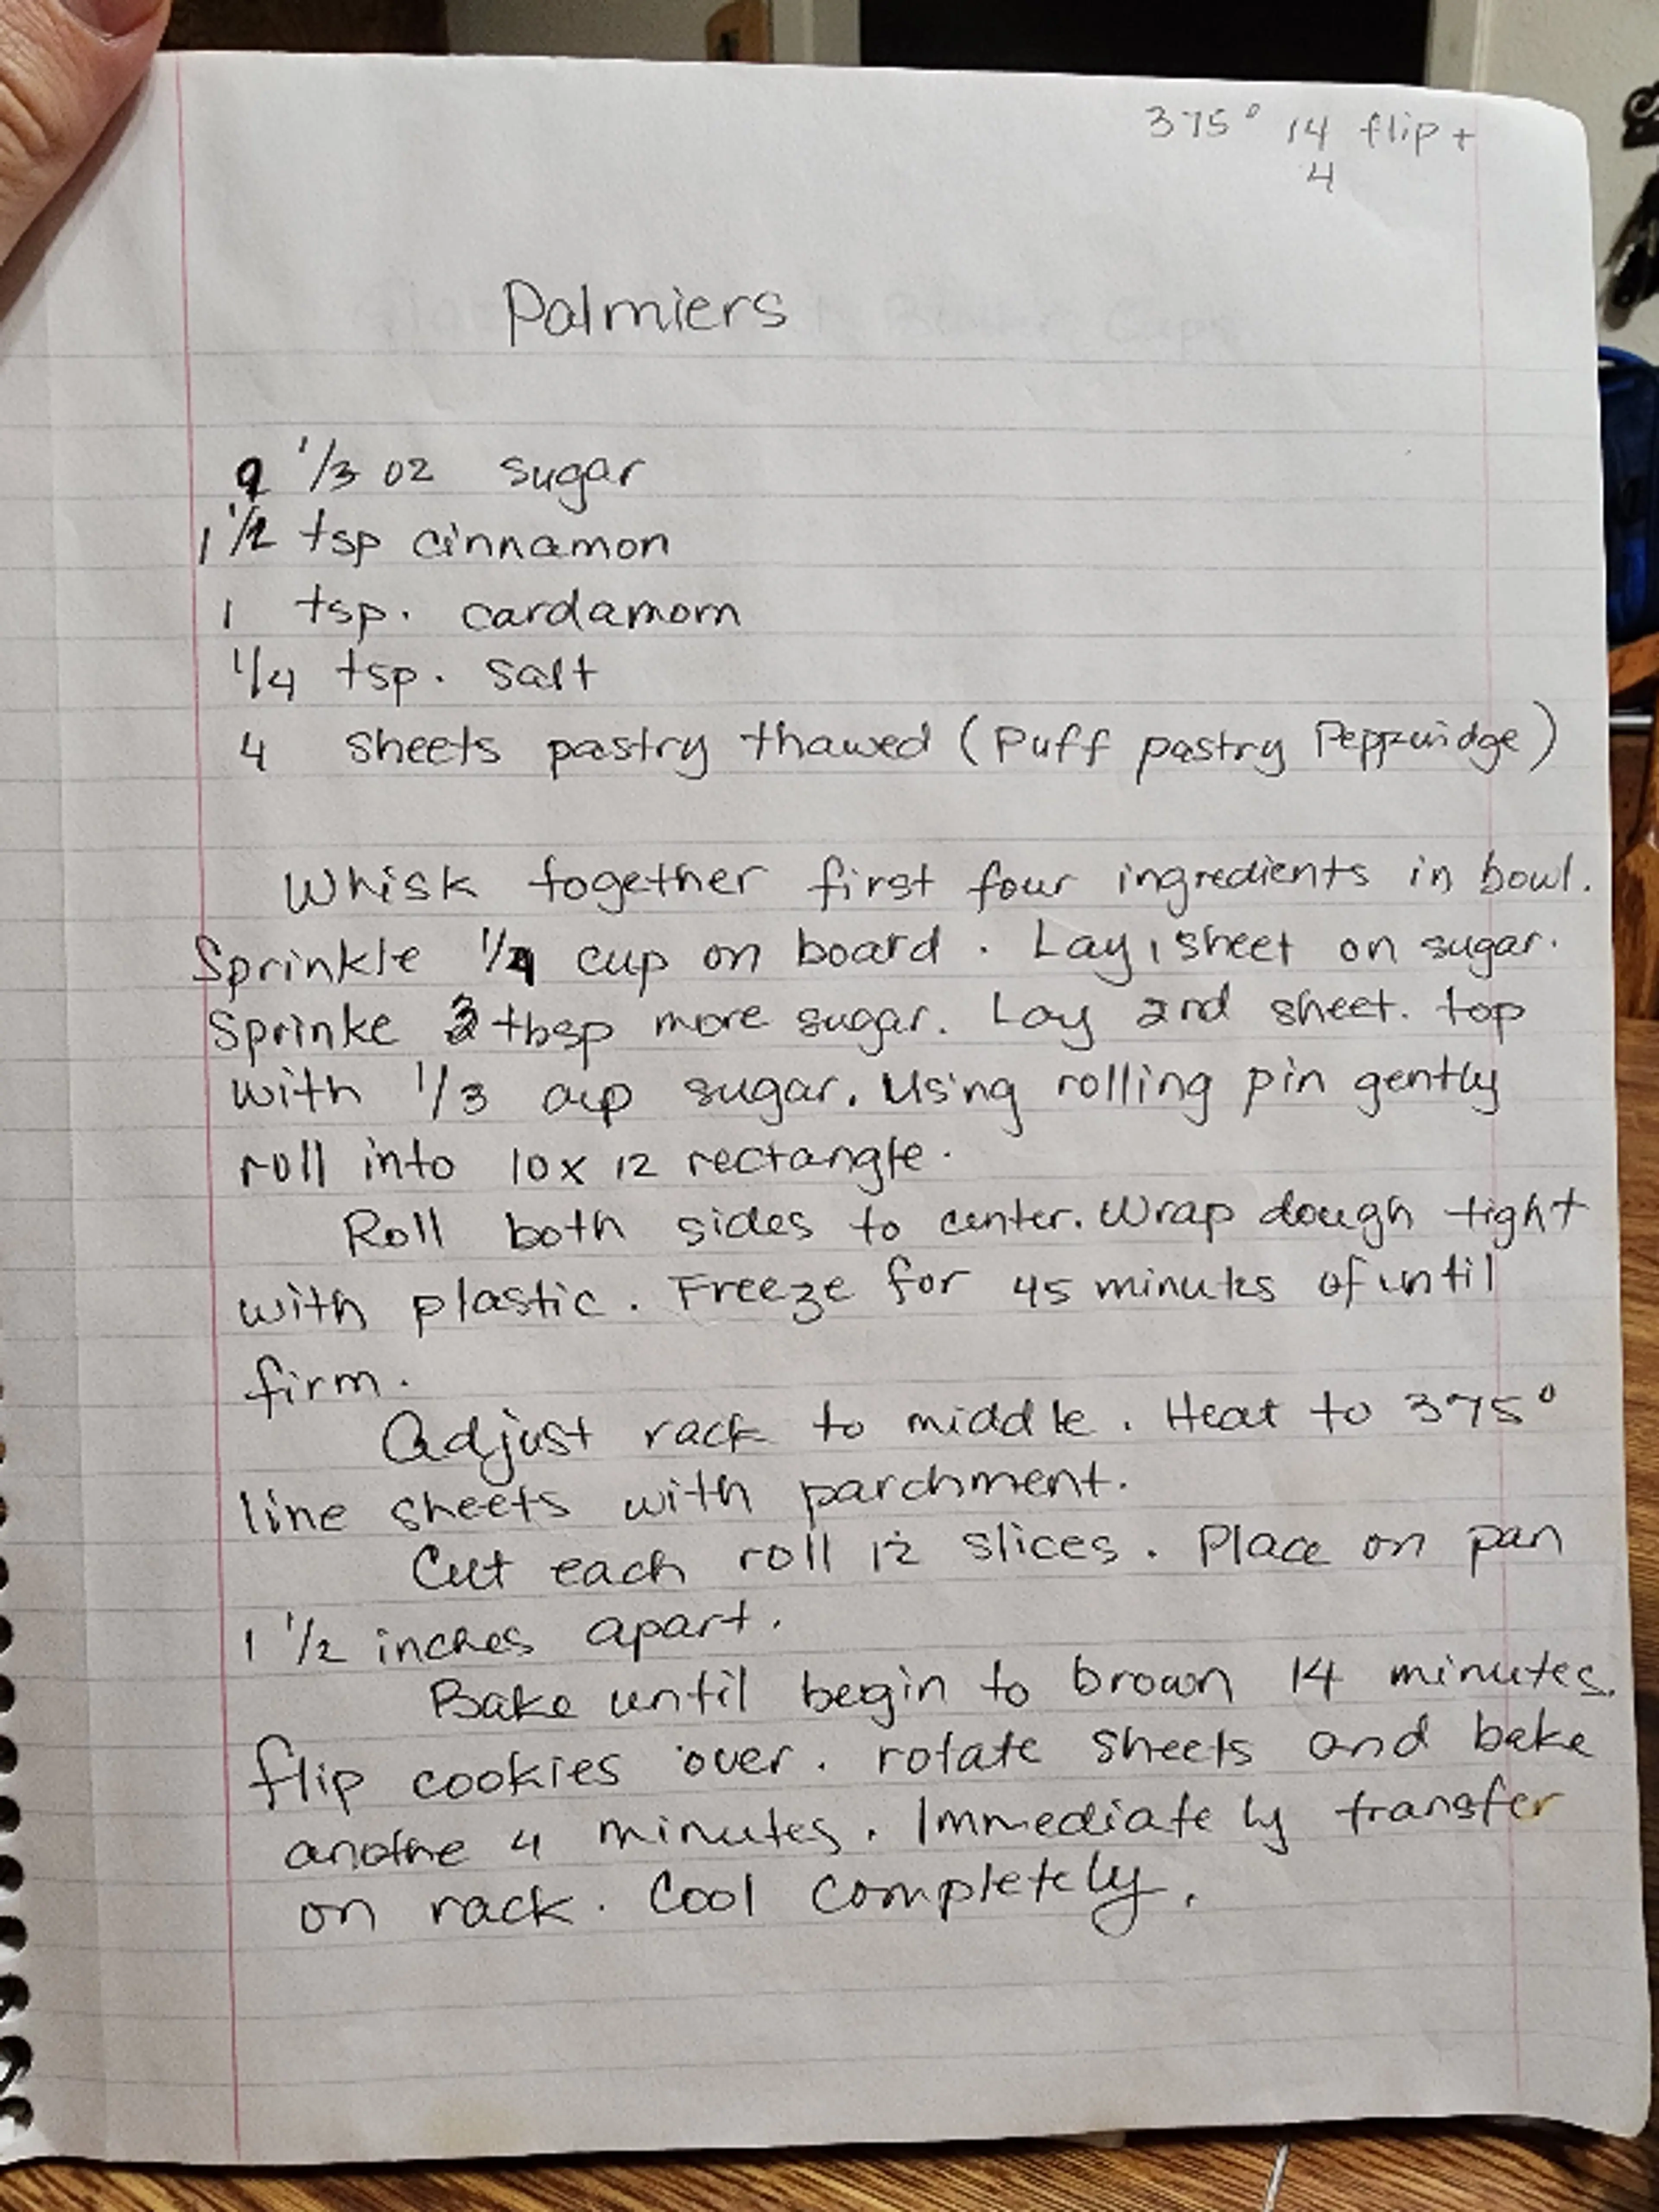 375° 14 flip +
4
Palmiers
9 1/3 oz sugar
1 1/2 tsp cinnamon
1 tsp. cardamom
1/4 tsp. salt
4 sheets pastry thawed (Puff pastry Pepperidge)
Whisk together first four ingredients in bowl.
Sprinkle 1/4 cup on board. Lay 1 sheet on sugar.
Sprinke 3 tbsp more sugar. Lay 2nd sheet. top
with 1/3 cup sugar. Using rolling pin gently
roll into 10 x 12 rectangle.
Roll both sides to center. Wrap dough tight
with plastic. Freeze for 45 minutes of until
firm.
Adjust rack to middle. Heat to 375°
line sheets with parchment.
Cut each roll 12 slices. Place on pan
1 1/2 inches apart.
Bake until begin to brown 14 minutes.
flip cookies over. rotate sheets and bake
anothe 4 minutes. Immediately transfer
on rack. Cool completely.